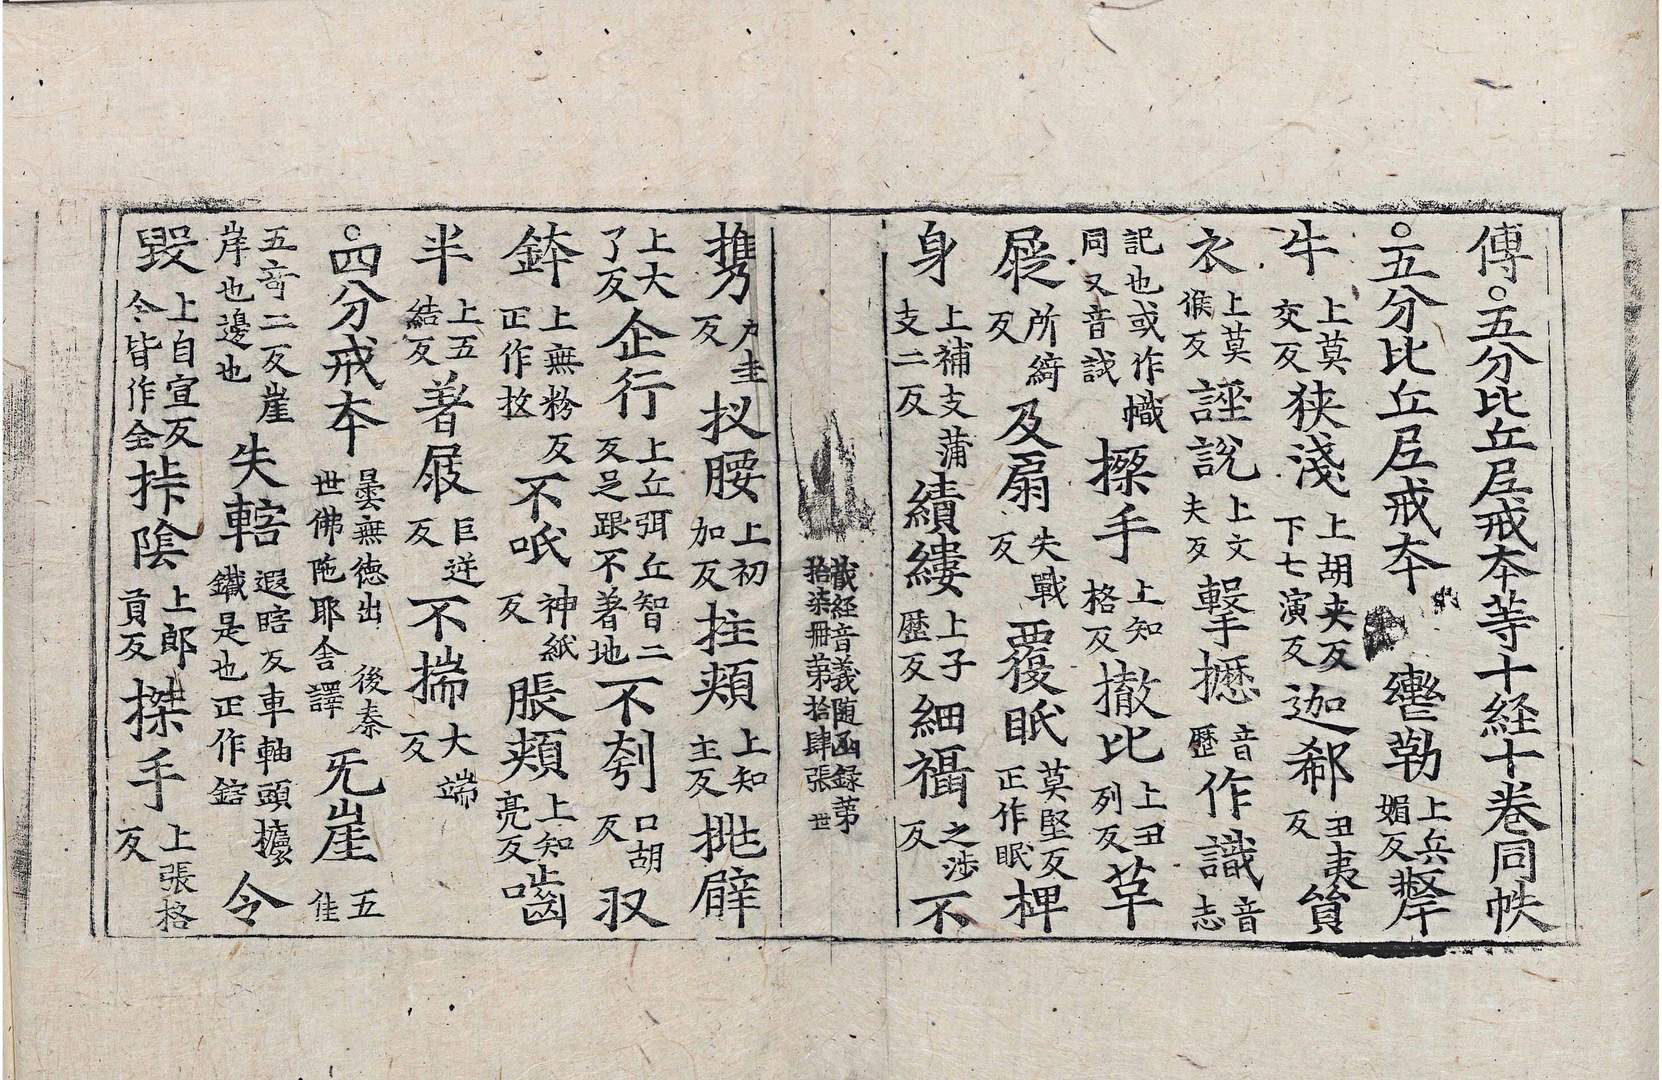 傳○五分比丘尼戒本等十経十巻同帙
○五分比丘尼戒本 轡勒上兵媚反犛
牛上莫交反狭淺上胡夹反下七演反迦郗丑夷反貿
衣上莫候反誣說上文夫反擊攊音歷作識音志
記也或作幟同又音試搩手上知格反撤比上丑列反草
屣所綺反及扇失戰反覆眂莫堅反正作眠椑
身上補支蒲支二反績縷上子歷反細襵之涉反不
藏経音義随函録第拾柒冊第拾肆張 世
攜户圭反扠腰上初加反拄頰上知主反挑臂
上大了反企行上丘弭丘智二反足跟不著地不刳口胡反汉
鉢上無粉反正作抆不呧神紙反脹頰上知亮反嚙
半上五結反著屐巨逆反不揣大端反
○四分戒本曇無德出後秦世佛陁耶舍譯 旡崖五佳
五竒二反崖岸也邊也失轄遐瞎反車軸頭鐵是也正作鎋令
毀上自宣反令皆作全挊陰上郎貢反搩手上張格反